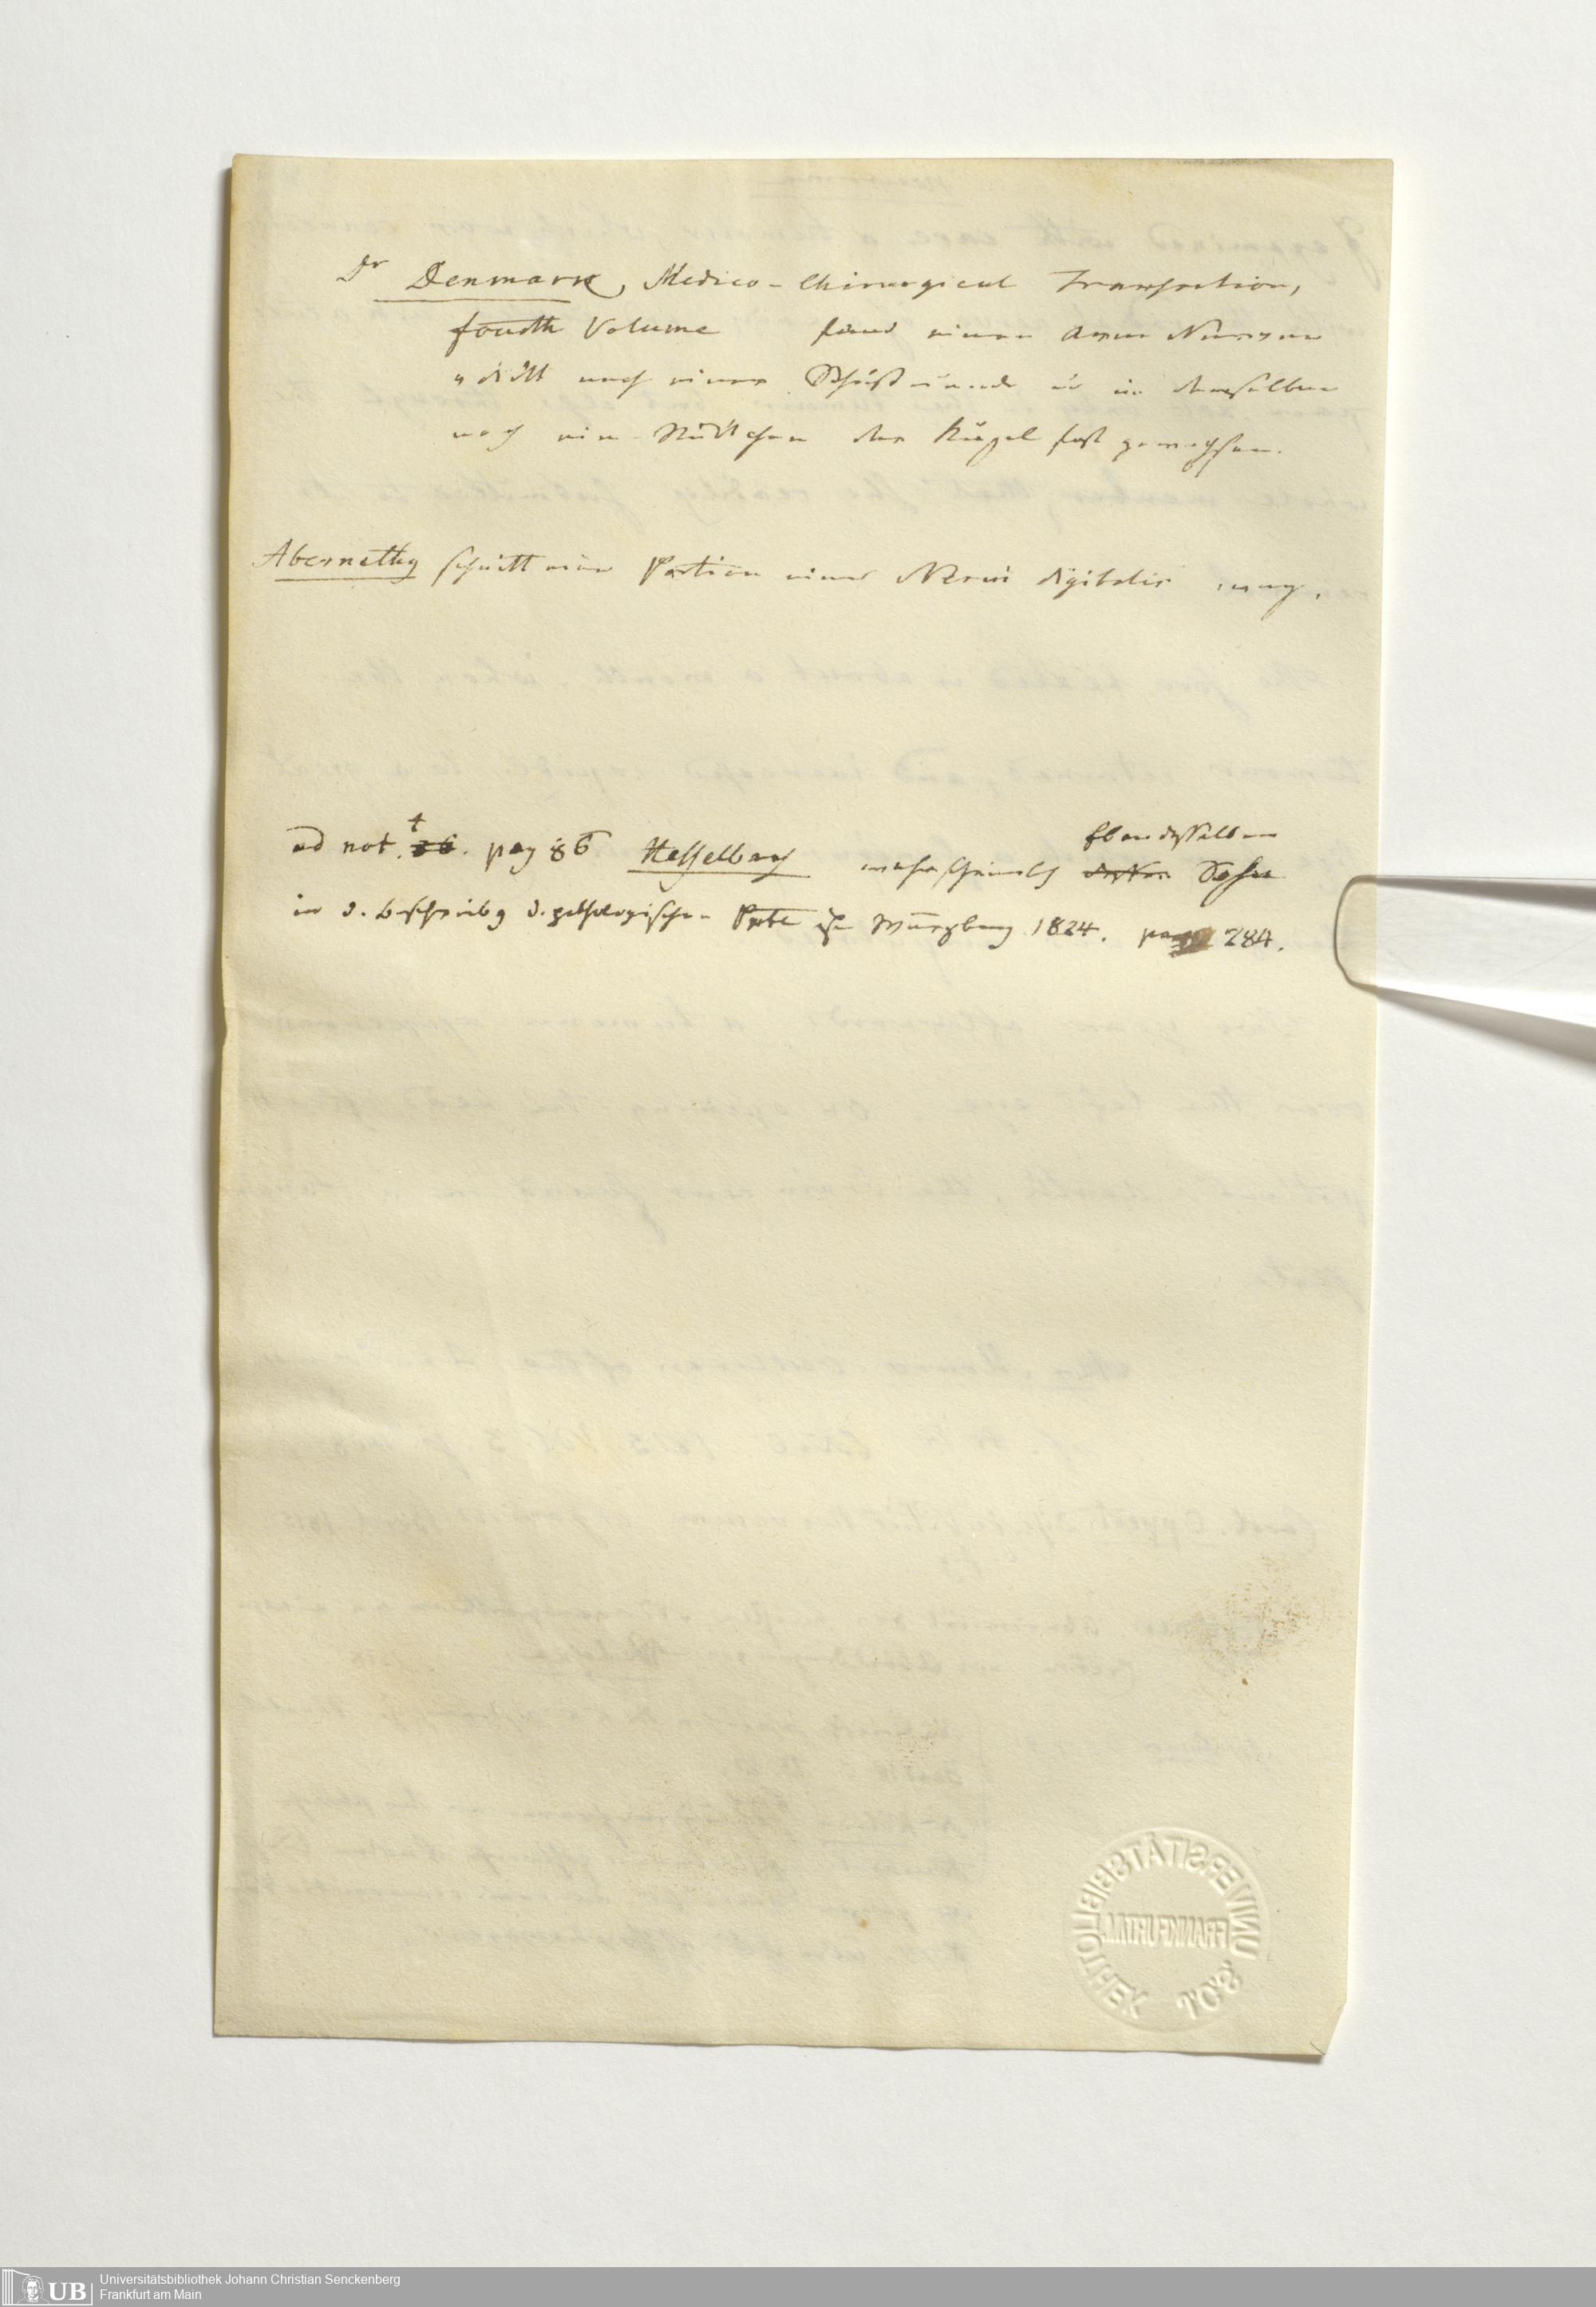 Dr Denmark, Medico-Chirurgical Transaction,
fourth Volume fand einen Arm Nerven
verdickt nach einer Schußwunde u in demselben
noch ein Stückchen der Kugel fest gewachsen.
Abernethy schnitt eine Portion eines Nervi digitalis weg.
ad not. 36. pag 86 Hesselbach wahrscheinlich Ebendesselben Sohn
in d. Beschreibg d. pathologischen Präte zu Würzburg 1824. pag 284.
UNIVERSITÄTSBIBLIOTHEK
FRANKFURT M.
UB
Universitätsbibliothek Johann Christian Senckenberg
Frankfurt am Main